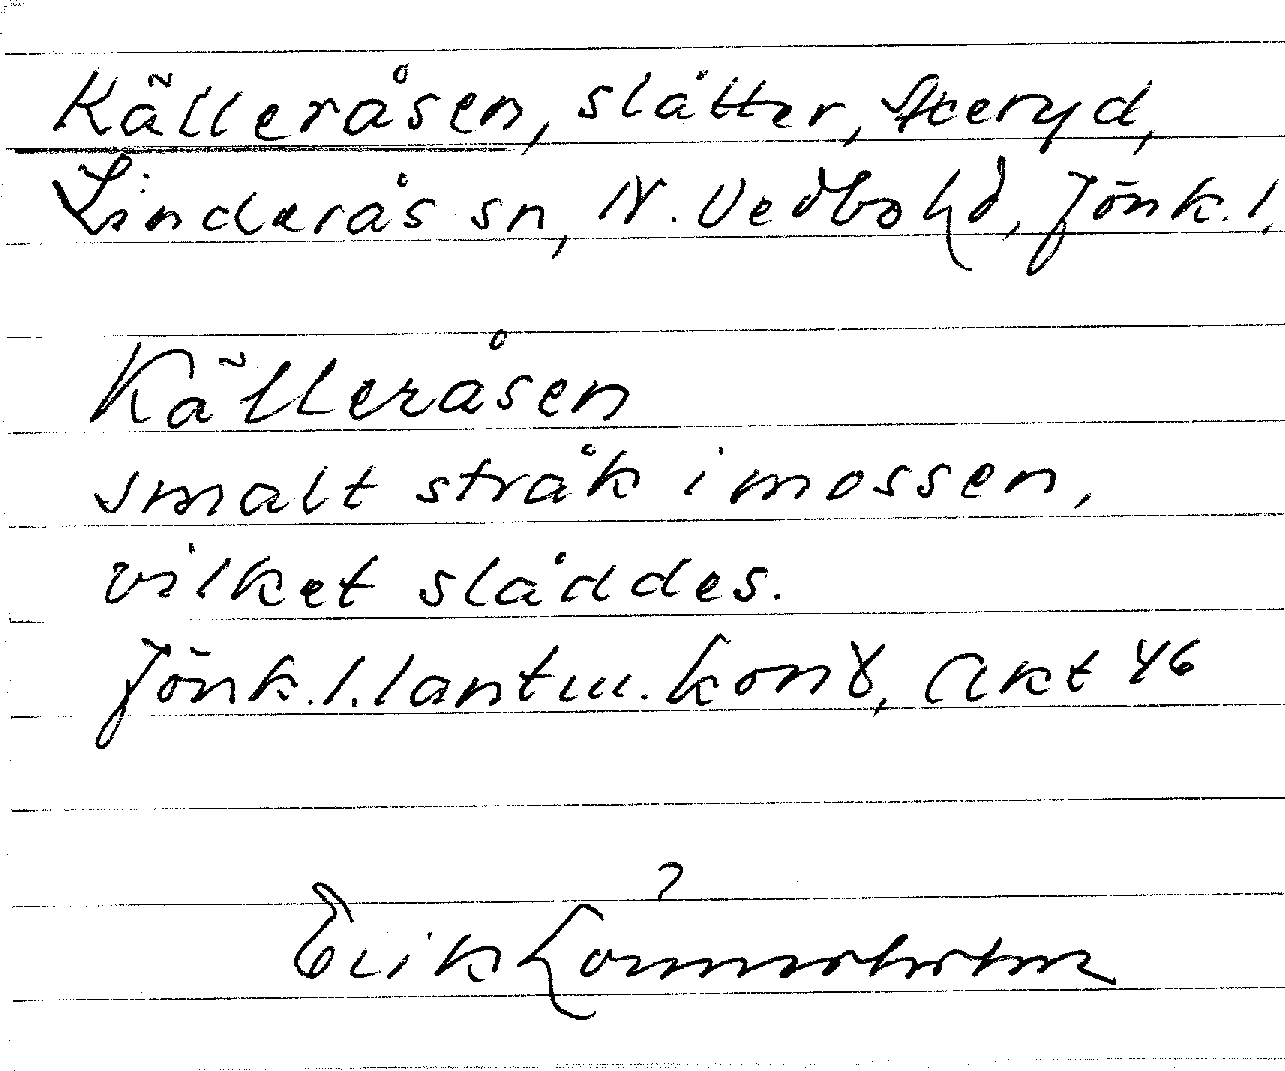 Källeråsen, slåtter, Steryd,
Linderås sn, N. Vedbo hd, Jönk. l.
Källeråsen
smalt stråk i mossen,
vilket slåddes.
Jönk. l. lantm. kont, Akt 46
Erik